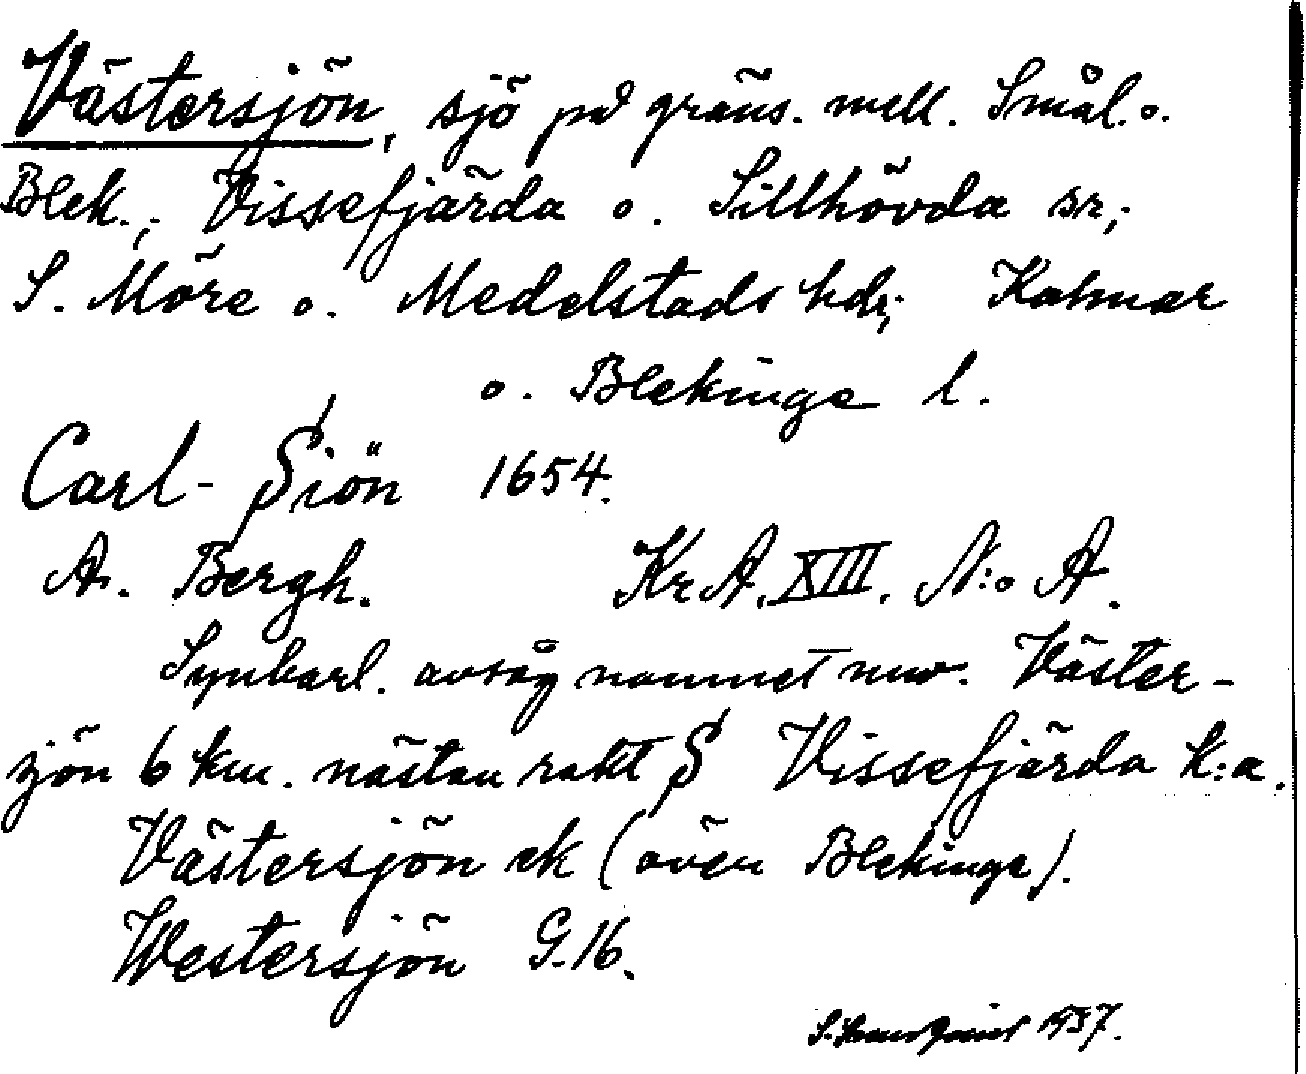 Västersjön, sjö på gräns. mell. Smål. o.
Blek.; Vissefjärda o. Sillhövda snr;
S. Möre o. Medelstads hdr; Kalmar
o. Blekinge l.
Carl-Siön 1654.
A. Bergh. KrA. XIII. N:o A.
Synbarl. avsåg namnet nuv. Väster-
sjön 6 km. nästan rakt S Vissefjärda k:a.
Västersjön ek (även Blekinge).
Westersjön G.16.
1937.